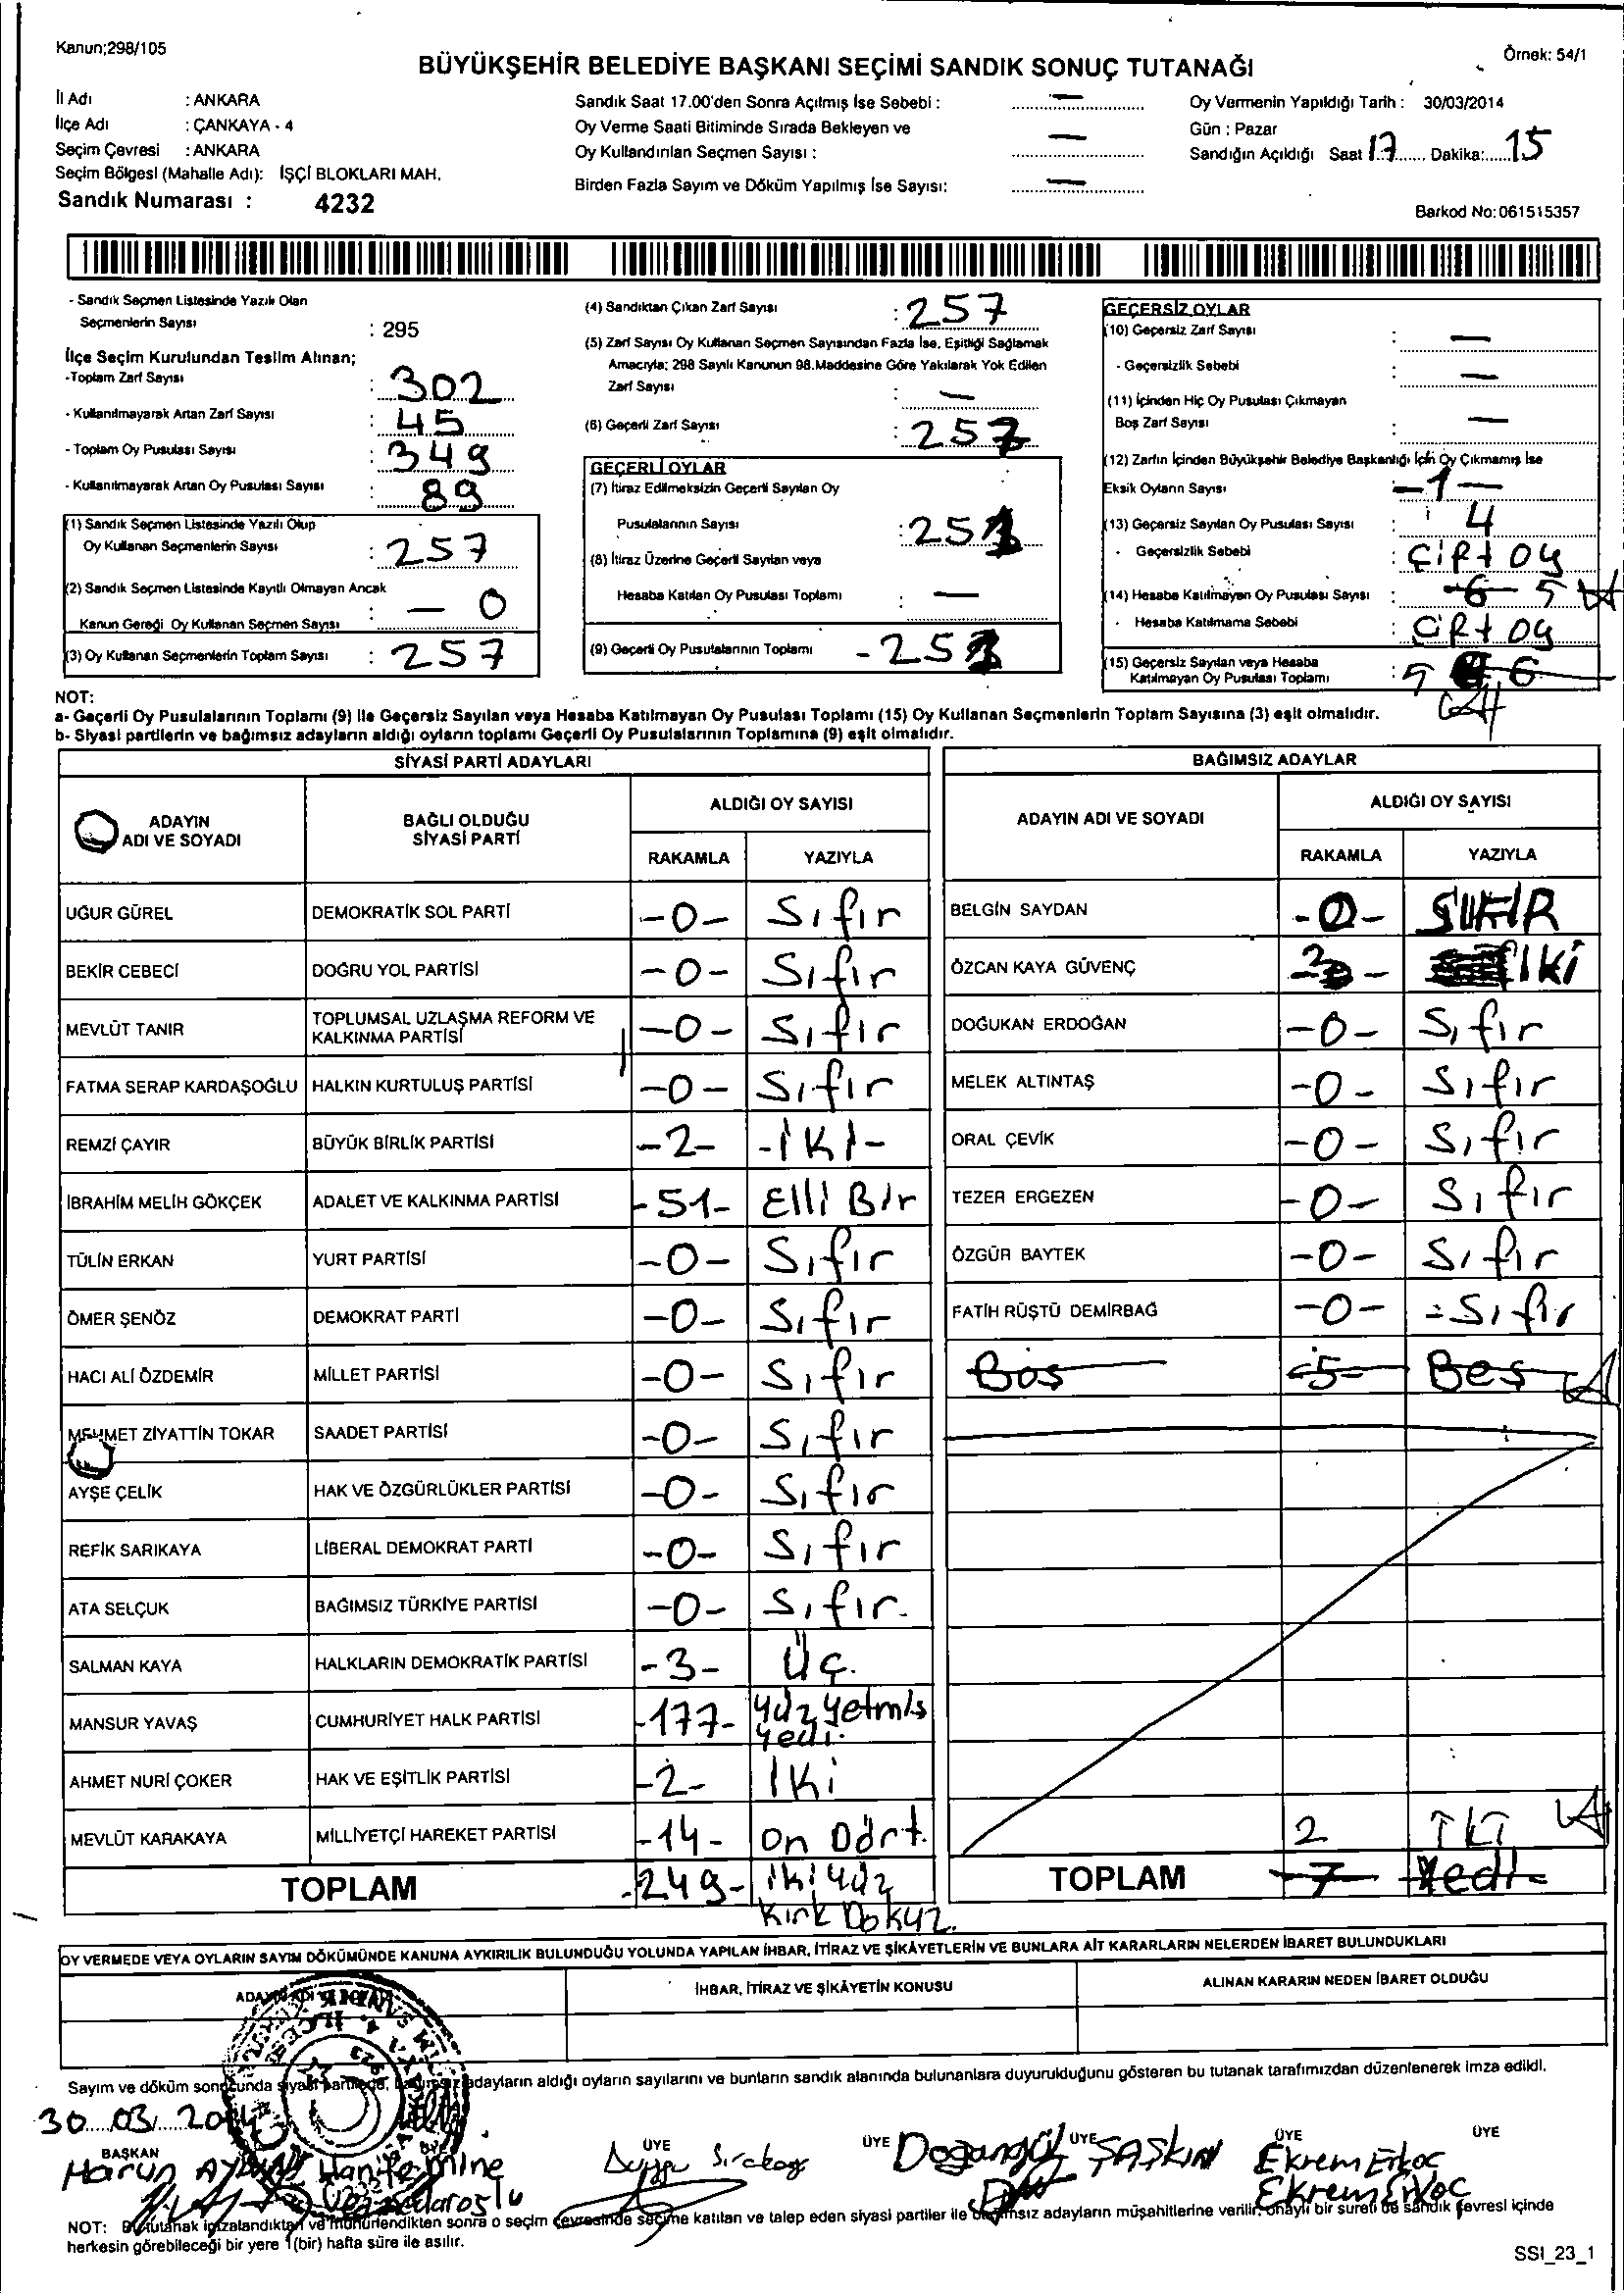 Kanun;298/105
Örnek: 54/1
BÜYÜKŞEHİR BELEDİYE BAŞKANI SEÇİMİ SANDIK SONUÇ TUTANAĞI
İl Adı : ANKARA
İlçe Adı : ÇANKAYA - 4
Seçim Çevresi : ANKARA
Seçim Bölgesi (Mahalle Adı): İŞÇİ BLOKLARI MAH.
Sandık Numarası : 4232
Sandık Saat 17.00'den Sonra Açılmış İse Sebebi : —
Oy Verme Saati Bitiminde Sırada Bekleyen ve
Oy Kullandırılan Seçmen Sayısı : —
Birden Fazla Sayım ve Döküm Yapılmış İse Sayısı: —
Oy Vermenin Yapıldığı Tarih : 30/03/2014
Gün : Pazar
Sandığın Açıldığı Saat 17 Dakika: 15
Barkod No:061515357
- Sandık Seçmen Listesinde Yazılı Olan
Seçmenlerin Sayısı : 295
İlçe Seçim Kurulundan Teslim Alınan;
-Toplam Zarf Sayısı : 302
- Kullanılmayarak Artan Zarf Sayısı : 45
- Toplam Oy Pusulası Sayısı : 349
- Kullanılmayarak Artan Oy Pusulası Sayısı : 89
(1) Sandık Seçmen Listesinde Yazılı Olup
Oy Kullanan Seçmenlerin Sayısı : 257
(2) Sandık Seçmen Listesinde Kayıtlı Olmayan Ancak
Kanun Gereği Oy Kullanan Seçmen Sayısı : — 0
(3) Oy Kullanan Seçmenlerin Toplam Sayısı : 257
(4) Sandıktan Çıkan Zarf Sayısı : 257
(5) Zarf Sayısı Oy Kullanan Seçmen Sayısından Fazla İse, Eşitliği Sağlamak
Amacıyla; 298 Sayılı Kanunun 98.Maddesine Göre Yakılarak Yok Edilen
Zarf Sayısı : —
(6) Geçerli Zarf Sayısı : 257
GEÇERLİ OYLAR
(7) İtiraz Edilmeksizin Geçerli Sayılan Oy
Pusulalarının Sayısı :
(8) İtiraz Üzerine Geçerli Sayılan veya
Hesaba Katılan Oy Pusulası Toplamı : —
(9) Geçerli Oy Pusulalarının Toplamı
GEÇERSİZ OYLAR
(10) Geçersiz Zarf Sayısı : —
- Geçersizlik Sebebi : —
(11) İçinden Hiç Oy Pusulası Çıkmayan
Boş Zarf Sayısı : —
(12) Zarfın İçinden Büyükşehir Belediye Başkanlığı İçin Oy Çıkmamış İse
Eksik Oyların Sayısı -1-
(13) Geçersiz Sayılan Oy Pusulası Sayısı : 4
- Geçersizlik Sebebi : Çift oy
(14) Hesaba Katılmayan Oy Pusulası Sayısı : 6 5
- Hesaba Katılmama Sebebi : Çift oy
(15) Geçersiz Sayılan veya Hesaba
Katılmayan Oy Pusulası Toplamı : 5 6
NOT:
a- Geçerli Oy Pusulalarının Toplamı (9) İle Geçersiz Sayılan veya Hesaba Katılmayan Oy Pusulası Toplamı (15) Oy Kullanan Seçmenlerin Toplam Sayısına (3) eşit olmalıdır.
b- Siyasi partilerin ve bağımsız adayların aldığı oyların toplamı Geçerli Oy Pusulalarının Toplamına (9) eşit olmalıdır.
SİYASİ PARTİ ADAYLARI
ADAYIN ADI VE SOYADI BAĞLI OLDUĞU SİYASİ PARTİ ALDIĞI OY SAYISI
RAKAMLA YAZIYLA
UĞUR GÜREL DEMOKRATİK SOL PARTİ -0- Sıfır
BEKİR CEBECİ DOĞRU YOL PARTİSİ -0- Sıfır
MEVLÜT TANIR TOPLUMSAL UZLAŞMA REFORM VE KALKINMA PARTİSİ -0- Sıfır
FATMA SERAP KARDAŞOĞLU HALKIN KURTULUŞ PARTİSİ -0- Sıfır
REMZİ ÇAYIR BÜYÜK BİRLİK PARTİSİ -2- -İKİ-
İBRAHİM MELİH GÖKÇEK ADALET VE KALKINMA PARTİSİ -51- Elli Bir
TÜLİN ERKAN YURT PARTİSİ -0- Sıfır
ÖMER ŞENÖZ DEMOKRAT PARTİ -0- Sıfır
HACI ALİ ÖZDEMİR MİLLET PARTİSİ -0- Sıfır
MEHMET ZİYATTİN TOKAR SAADET PARTİSİ -0- Sıfır
AYŞE ÇELİK HAK VE ÖZGÜRLÜKLER PARTİSİ -0- Sıfır
REFİK SARIKAYA LİBERAL DEMOKRAT PARTİ -0- Sıfır
ATA SELÇUK BAĞIMSIZ TÜRKİYE PARTİSİ -0- Sıfır.
SALMAN KAYA HALKLARIN DEMOKRATİK PARTİSİ -3- Üç.
MANSUR YAVAŞ CUMHURİYET HALK PARTİSİ -177- Yüz yetmiş yedi.
AHMET NURİ ÇOKER HAK VE EŞİTLİK PARTİSİ -2- İki
MEVLÜT KARAKAYA MİLLİYETÇİ HAREKET PARTİSİ -14- On Dört.
TOPLAM -249- iki yüz Kırk Dokuz.
BAĞIMSIZ ADAYLAR
ADAYIN ADI VE SOYADI ALDIĞI OY SAYISI
RAKAMLA YAZIYLA
BELGİN SAYDAN -0- SIFIR
ÖZCAN KAYA GÜVENÇ 2 - İKİ
DOĞUKAN ERDOĞAN -0- Sıfır
MELEK ALTINTAŞ -0- Sıfır
ORAL ÇEVİK -0- Sıfır
TEZER ERGEZEN -0- Sıfır
ÖZGÜR BAYTEK -0- Sıfır
FATİH RÜŞTÜ DEMİRBAĞ -0- -Sıfır
Boş -5- Beş
2 İKİ
TOPLAM -7- Yedi-
OY VERMEDE VEYA OYLARIN SAYIM DÖKÜMÜNDE KANUNA AYKIRILIK BULUNDUĞU YOLUNDA YAPILAN İHBAR, İTİRAZ VE ŞİKÂYETLERİN VE BUNLARA AİT KARARLARIN NELERDEN İBARET BULUNDUKLARI
İHBAR, İTİRAZ VE ŞİKÂYETİN KONUSU ALINAN KARARIN NEDEN İBARET OLDUĞU
Sayım ve döküm sonucunda siyasi partilerin, bağımsız adayların aldığı oyların sayılarını ve bunların sandık alanında bulunanlara duyurulduğunu gösteren bu tutanak tarafımızdan düzenlenerek imza edildi.
30.03.2014
BAŞKAN ÜYE ÜYE ÜYE ÜYE ÜYE
Harun Hanife Mine Doğangül ŞAŞKIN Ekrem Erkoç
Ekrem Erkoç
NOT: Bu tutanak imzalandıktan ve mühürlendikten sonra o seçim çevresinde seçime katılan ve talep eden siyasi partiler ile bağımsız adayların müşahitlerine verilir, onaylı bir sureti de sandık çevresi içinde
herkesin görebileceği bir yere 1(bir) hafta süre ile asılır.
SSI_23_1